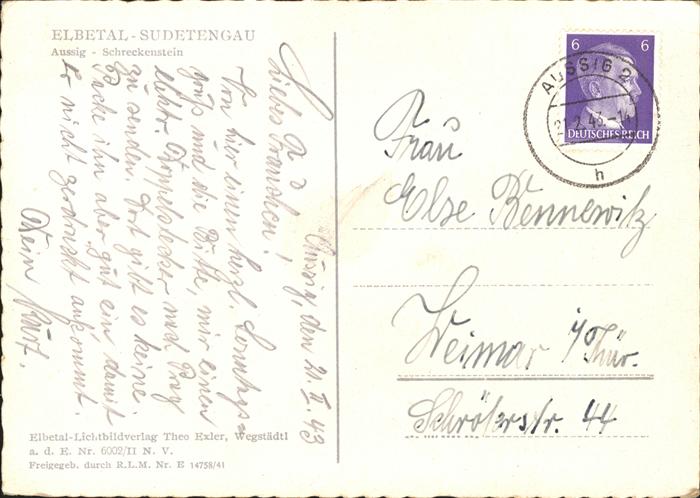 ELBETAL - SUDETENGAU
Aussig - Schreckenstein
Aussig, den 21. II. 43
Liebes Frauchen!
Von hier einen herzl. Sonntags-
gruß und die Bitte, mir einen
nach Prag
zu senden. Dort gibt es keine.
Packe ihn aber gut ein, damit
er nicht zerdrückt ankommt.
Dein Kurt.
Elbetal-Lichtbildverlag Theo Exler, Wegstädtl
a. d. E. Nr. 6002/II N. V.
Freigegeb. durch R.L.M. Nr. E 14758/41
6 6
DEUTSCHES REICH
AUSSIG 2
21.2.43.-14
h
Frau
Else Bennewitz
Weimar i/Thür.
Schröterstr. 44